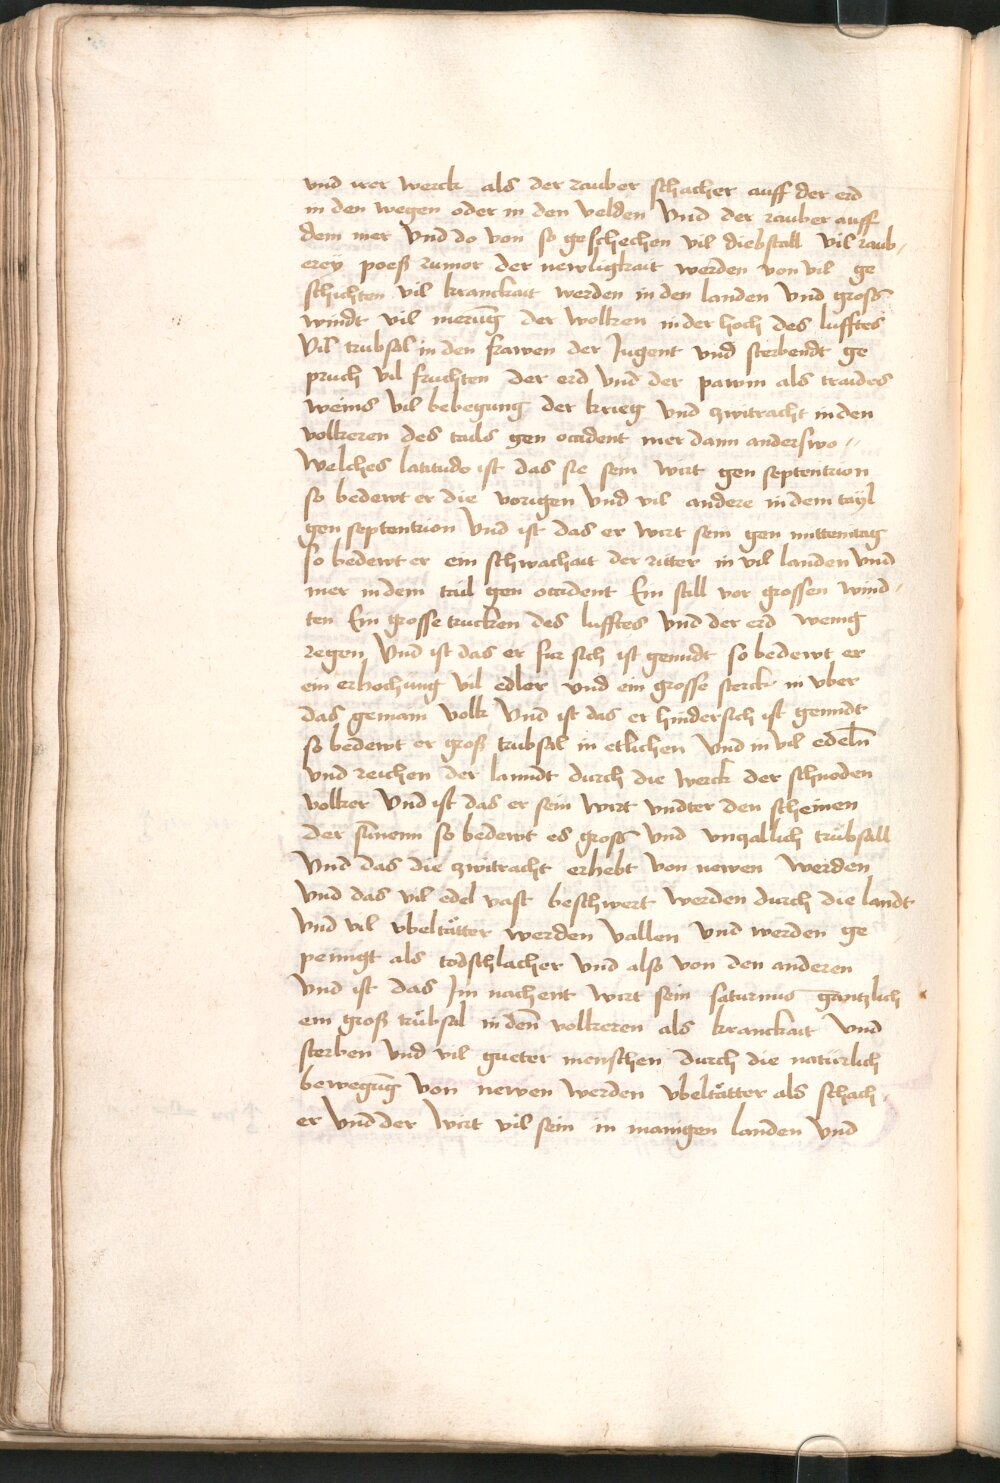 vnd irer werck als der rauber schacher auff der erd
in den wegen oder in den velden Vnd der rauber auff
dem mer Vnd do von so geschechen vil diebstall vil raub-
erey poeß rumor der newligkait werden von vil ge
schichten vil kranckait werden in den landen Vnd gross
windt vil merūg der wolken in der hoch des lufftes
Vil trubsal in den frawen der Jugent vnd sterbendt ge
pruch vil fruchten der erd Vnd der pawm als traides
weins vil bebegung der krieg vnd zwitracht in den
volkeren des tails gen occident mer dann anderswo //
Welches latitudo ist das sie sein wirt gen septentrion
so bedewt er die vorigen Vnd vil andere in dem tayl
gen septentrion Vnd ist das er wirt sein gen mittemtag
so bedewt er ein schwachait der ritter in vil landen Vnd
mer in dem tail gen occident Ein still vor grossen wind-
ten Ein grosse trucken des lufftes Vnd der erd wenig
regen Vnd ist das er fur sich ist genndt so bedewt er
ein erhochung vil edler vnd ein grosse sterck in vber
das gemain volk Vnd ist das er hindersich ist genndt
so bedewt er groß trubsal in etlichen Vnd in vil edelñ
vnd reichen der lanndt durch die werck der schnoden
volker Vnd ist das er sein wirt vndter den scheinen
der sūnenn so bedewt es gross Vnd vnzallich trubsall
Vnd das die zwitracht erhebt von newen werden
vnd das vil edel vast beschwert werden durch die landt
Vnd vil vbeltätter werden vallen Vnd werden ge
peinigt als todschlacher Vnd also von den anderen
Vnd ist das Im nachent wirt sein saturnus gantzlich
ein groß trübsal in den volkeren als kranckait Vnd
sterben Vnd vil gueter menschen durch die natürlich
bewegūg von newen werden vbeltätter als schach-
er Vnd der wirt vil sein in manigen landen Vnd